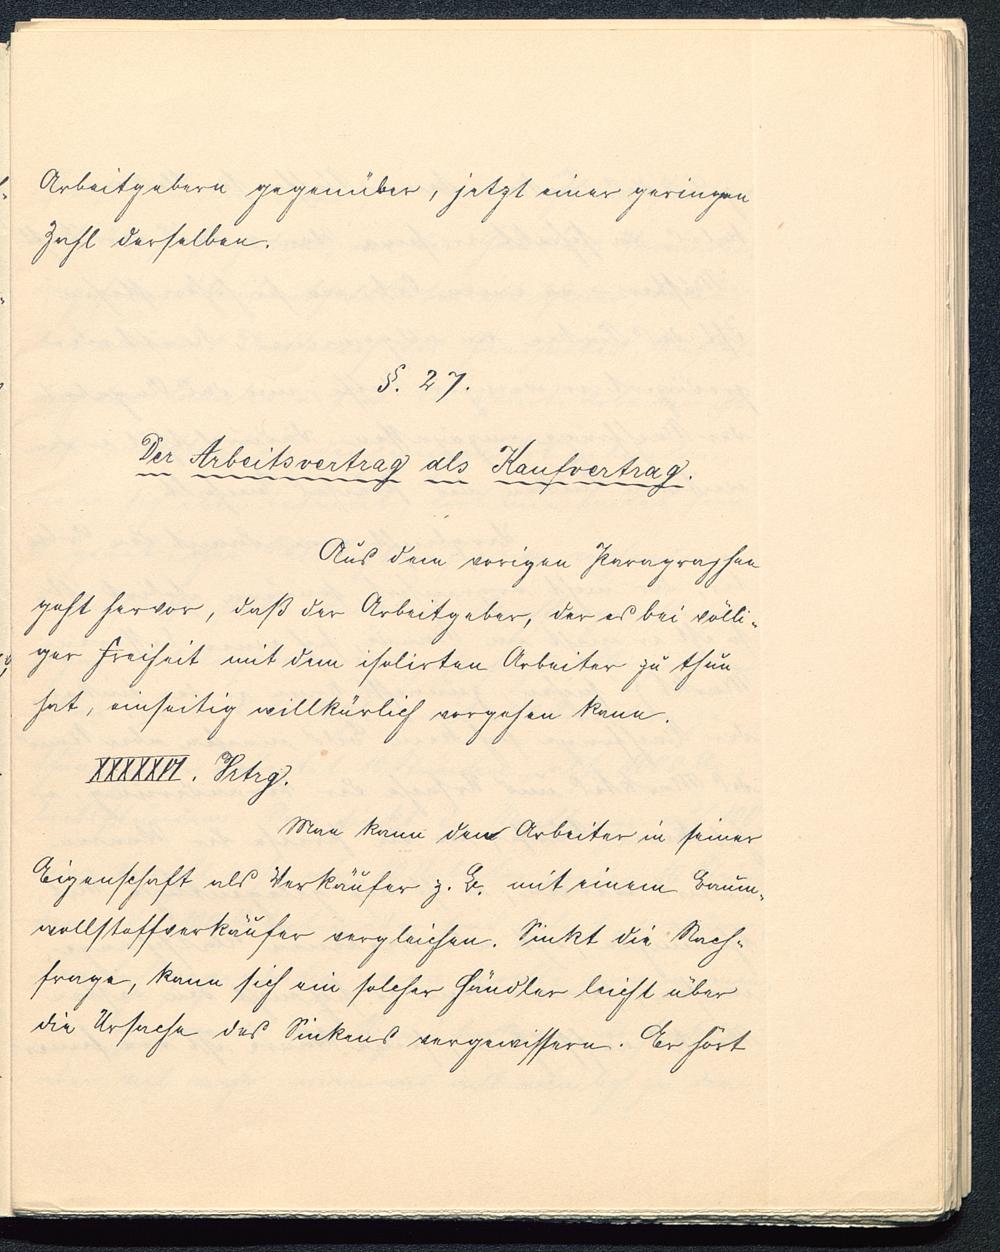 Arbeitgebern gegenüber, jetzt einer geringen
Zahl derselben.
§. 27.
Der Arbeitsvertrag als Kaufvertrag.
Aus dem vorigen Paragraphen
geht hervor, daß der Arbeitgeber, der es bei völli-
ger Freiheit mit dem isolirten Arbeiter zu thun
hat, einseitig willkürlich vorgehen kann.
XXXXXVI. Vrtrg.
Man kann den Arbeiter in seiner
Eigenschaft als Verkäufer z. B. mit einem Baum-
wollstoffverkäufer vergleichen. Sinkt die Nach-
frage, kann sich ein solcher Händler leicht über
die Ursache des Sinkens vergewissern. Er hört